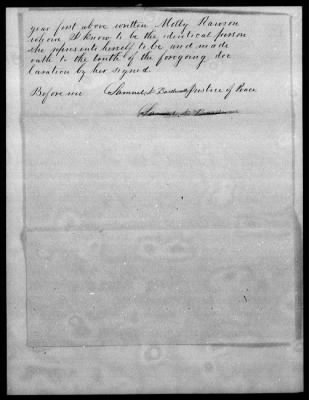 year first above written Molly Rawson
whom I know to be the identical person
she represents herself to be and made
oath to the truth of the foregoing dec
laration by her signed.
Before me Samuel Justice of Peace
Samuel